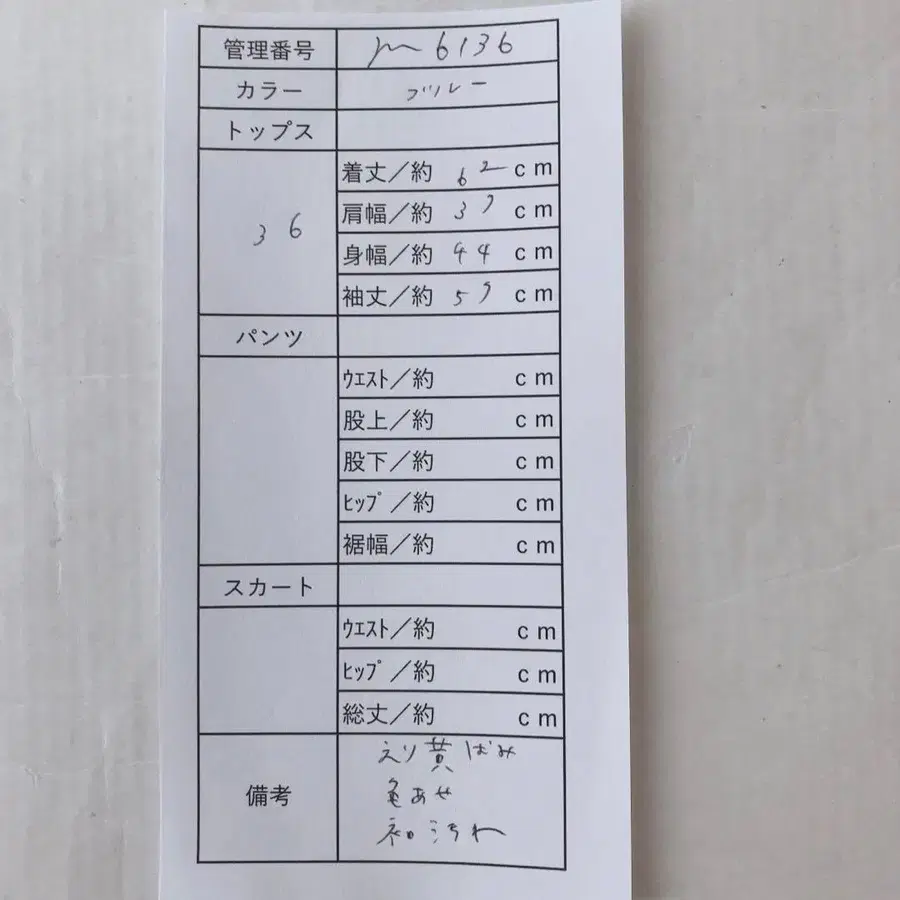 管理番号 m6136
カラー ブルー
トップス
36
着丈／約 62 cm
肩幅／約 37 cm
身幅／約 44 cm
袖丈／約 59 cm
パンツ
ｳｴｽﾄ／約 cm
股上／約 cm
股下／約 cm
ﾋｯﾌﾟ／約 cm
裾幅／約 cm
スカート
ｳｴｽﾄ／約 cm
ﾋｯﾌﾟ／約 cm
総丈／約 cm
備考
えり黄ばみ
色あせ
袖汚れ